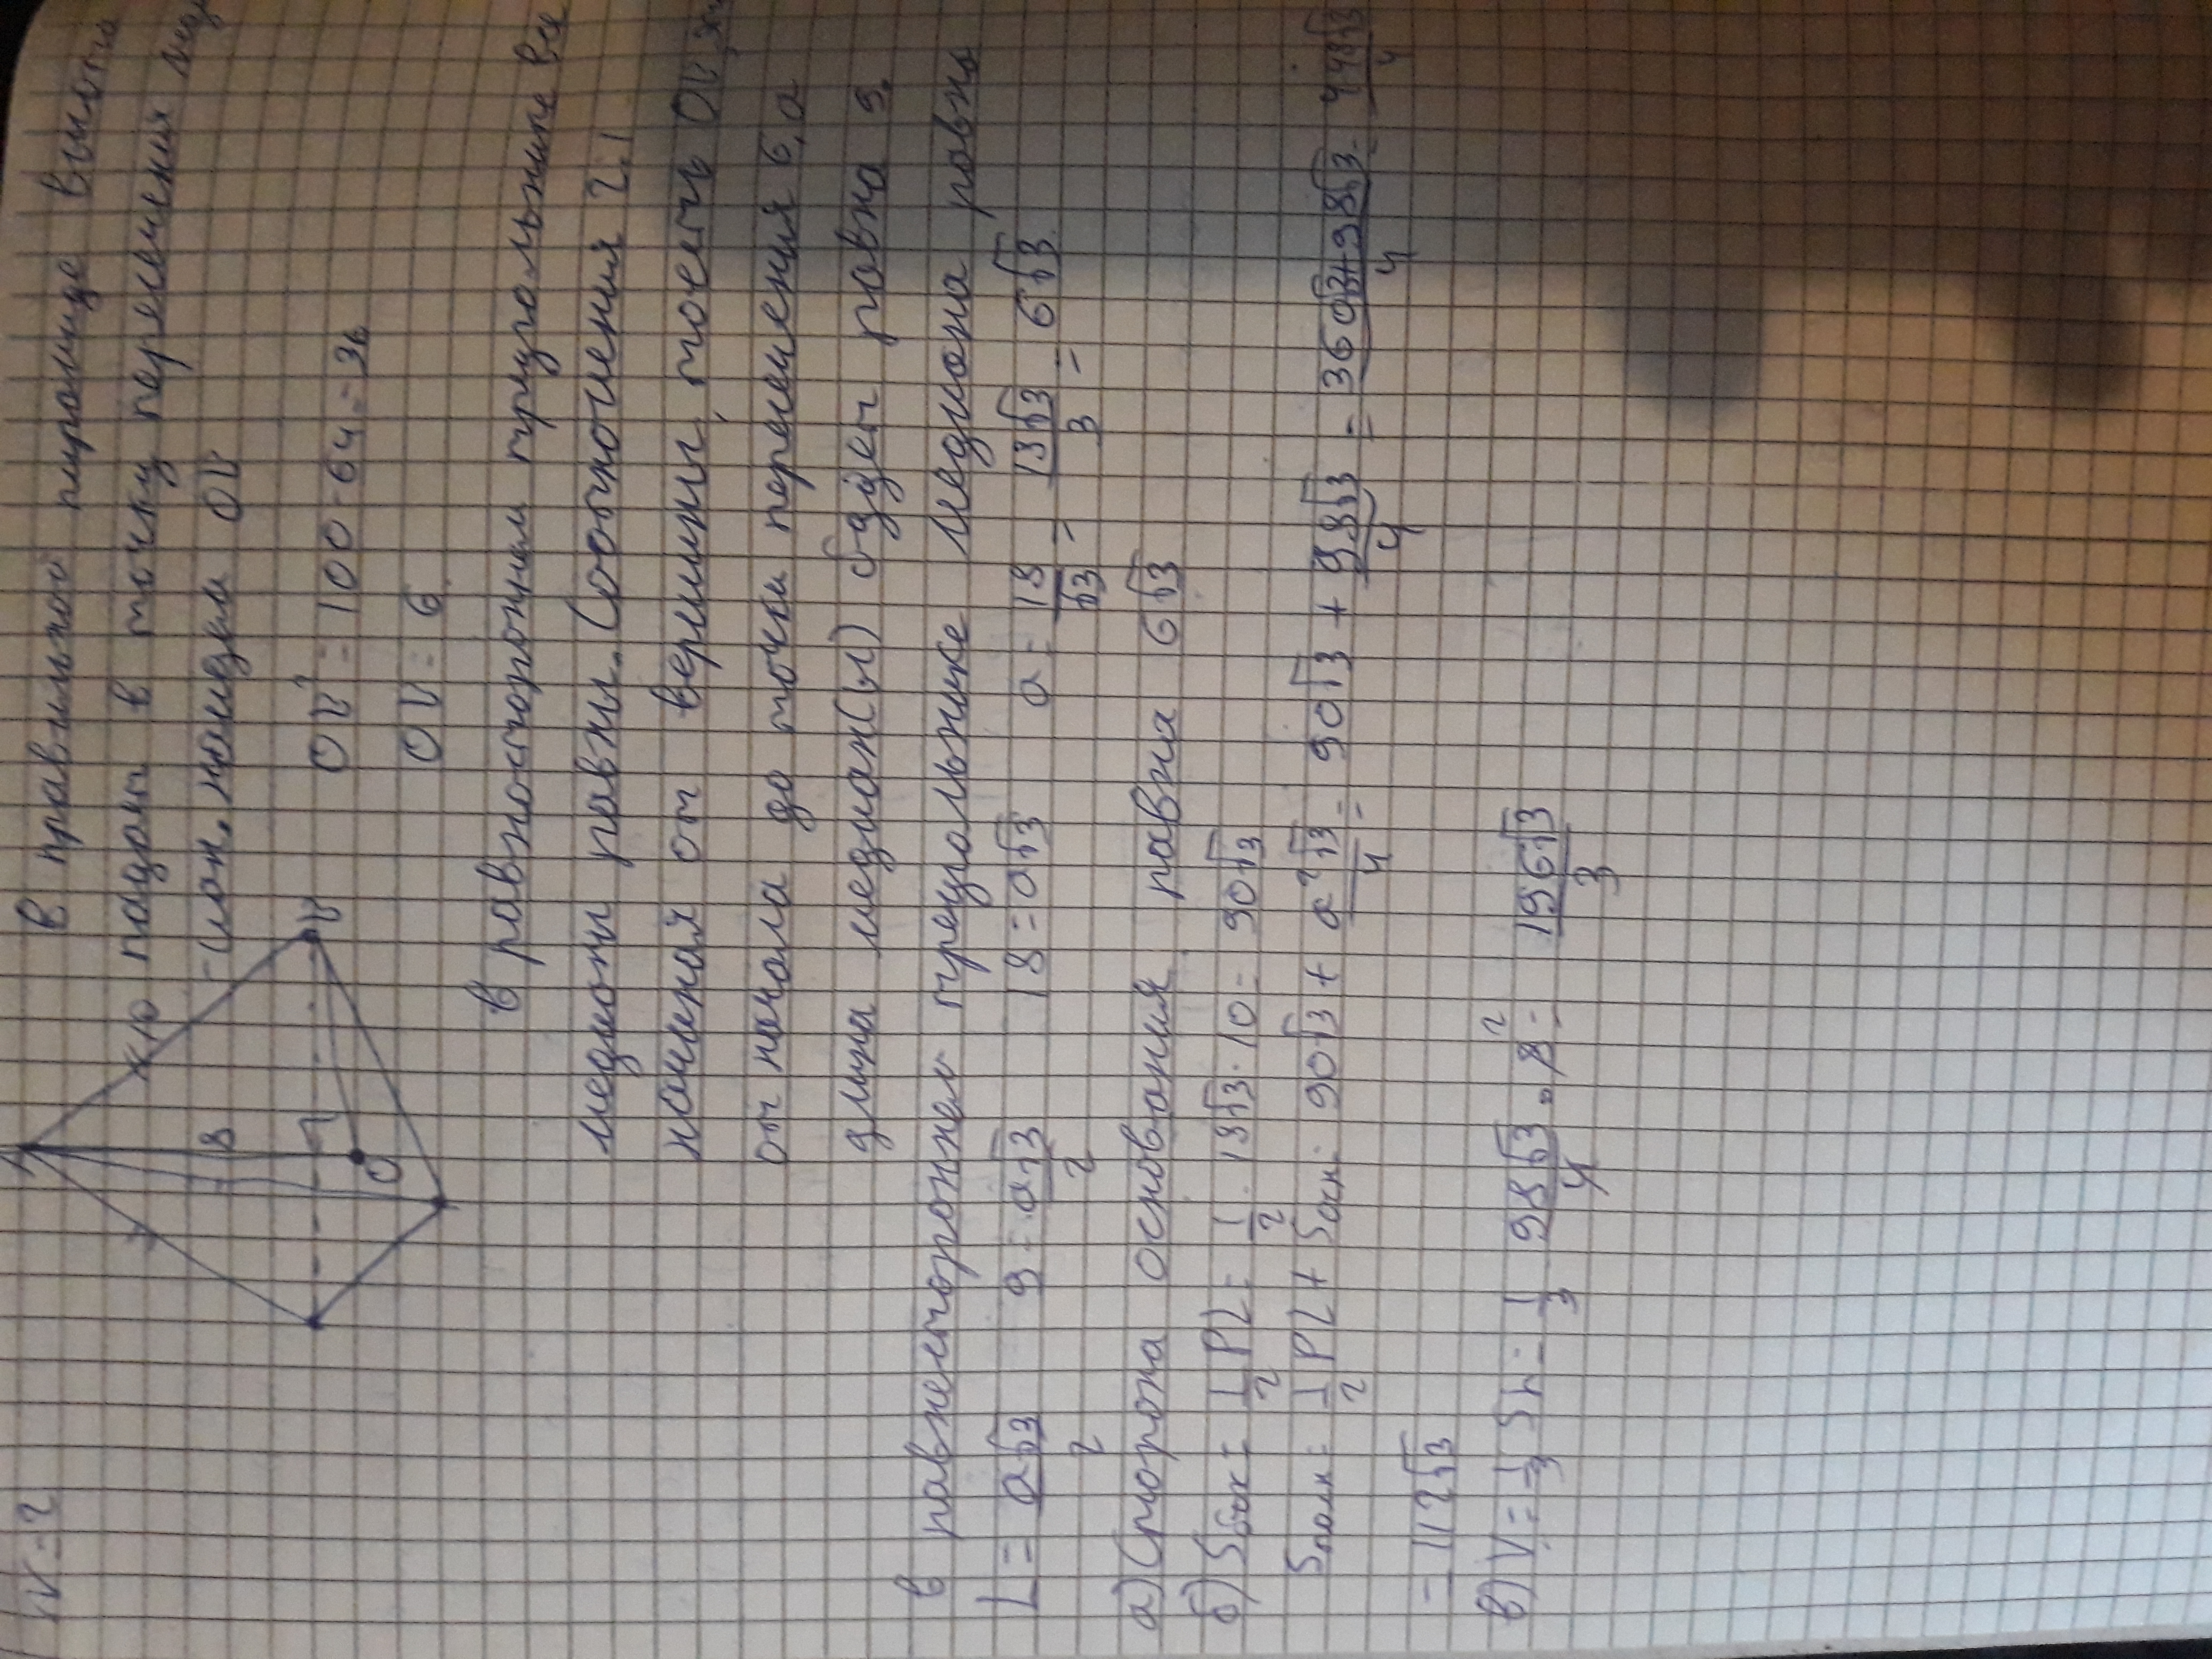 V = ?
В правильной пирамиде высота
падает в точку пересечения
-иан. найдем OK
OK² = 100 - 64 = 36
OK = 6
10
8
K
O
В равностороннем треугольнике все
медианы равны. Соотношения 2:1
начиная от вершины, тоесть OK
от начала до точки пересечения 6, а
длина медиан(ы) будет равна 9.
В равностороннем треугольнике медиана равна
L = a√3/2 9 = a√3/2 18 = a√3 a = 18/√3 = 18√3/3 = 6√3
а) Сторона основания равна 6√3
б) Sбок = 1/2 PL = 1/2 · 18√3 · 10 = 90√3
Sполн = 1/2 PL + Sосн = 90√3 + a²√3/4 = 90√3 + 98√3/4 = 360√3+98√3/4 = 448√3/4
= 112√3
в) V = 1/3 Sh = 1/3 98√3/4 · 8² = 196√3/3